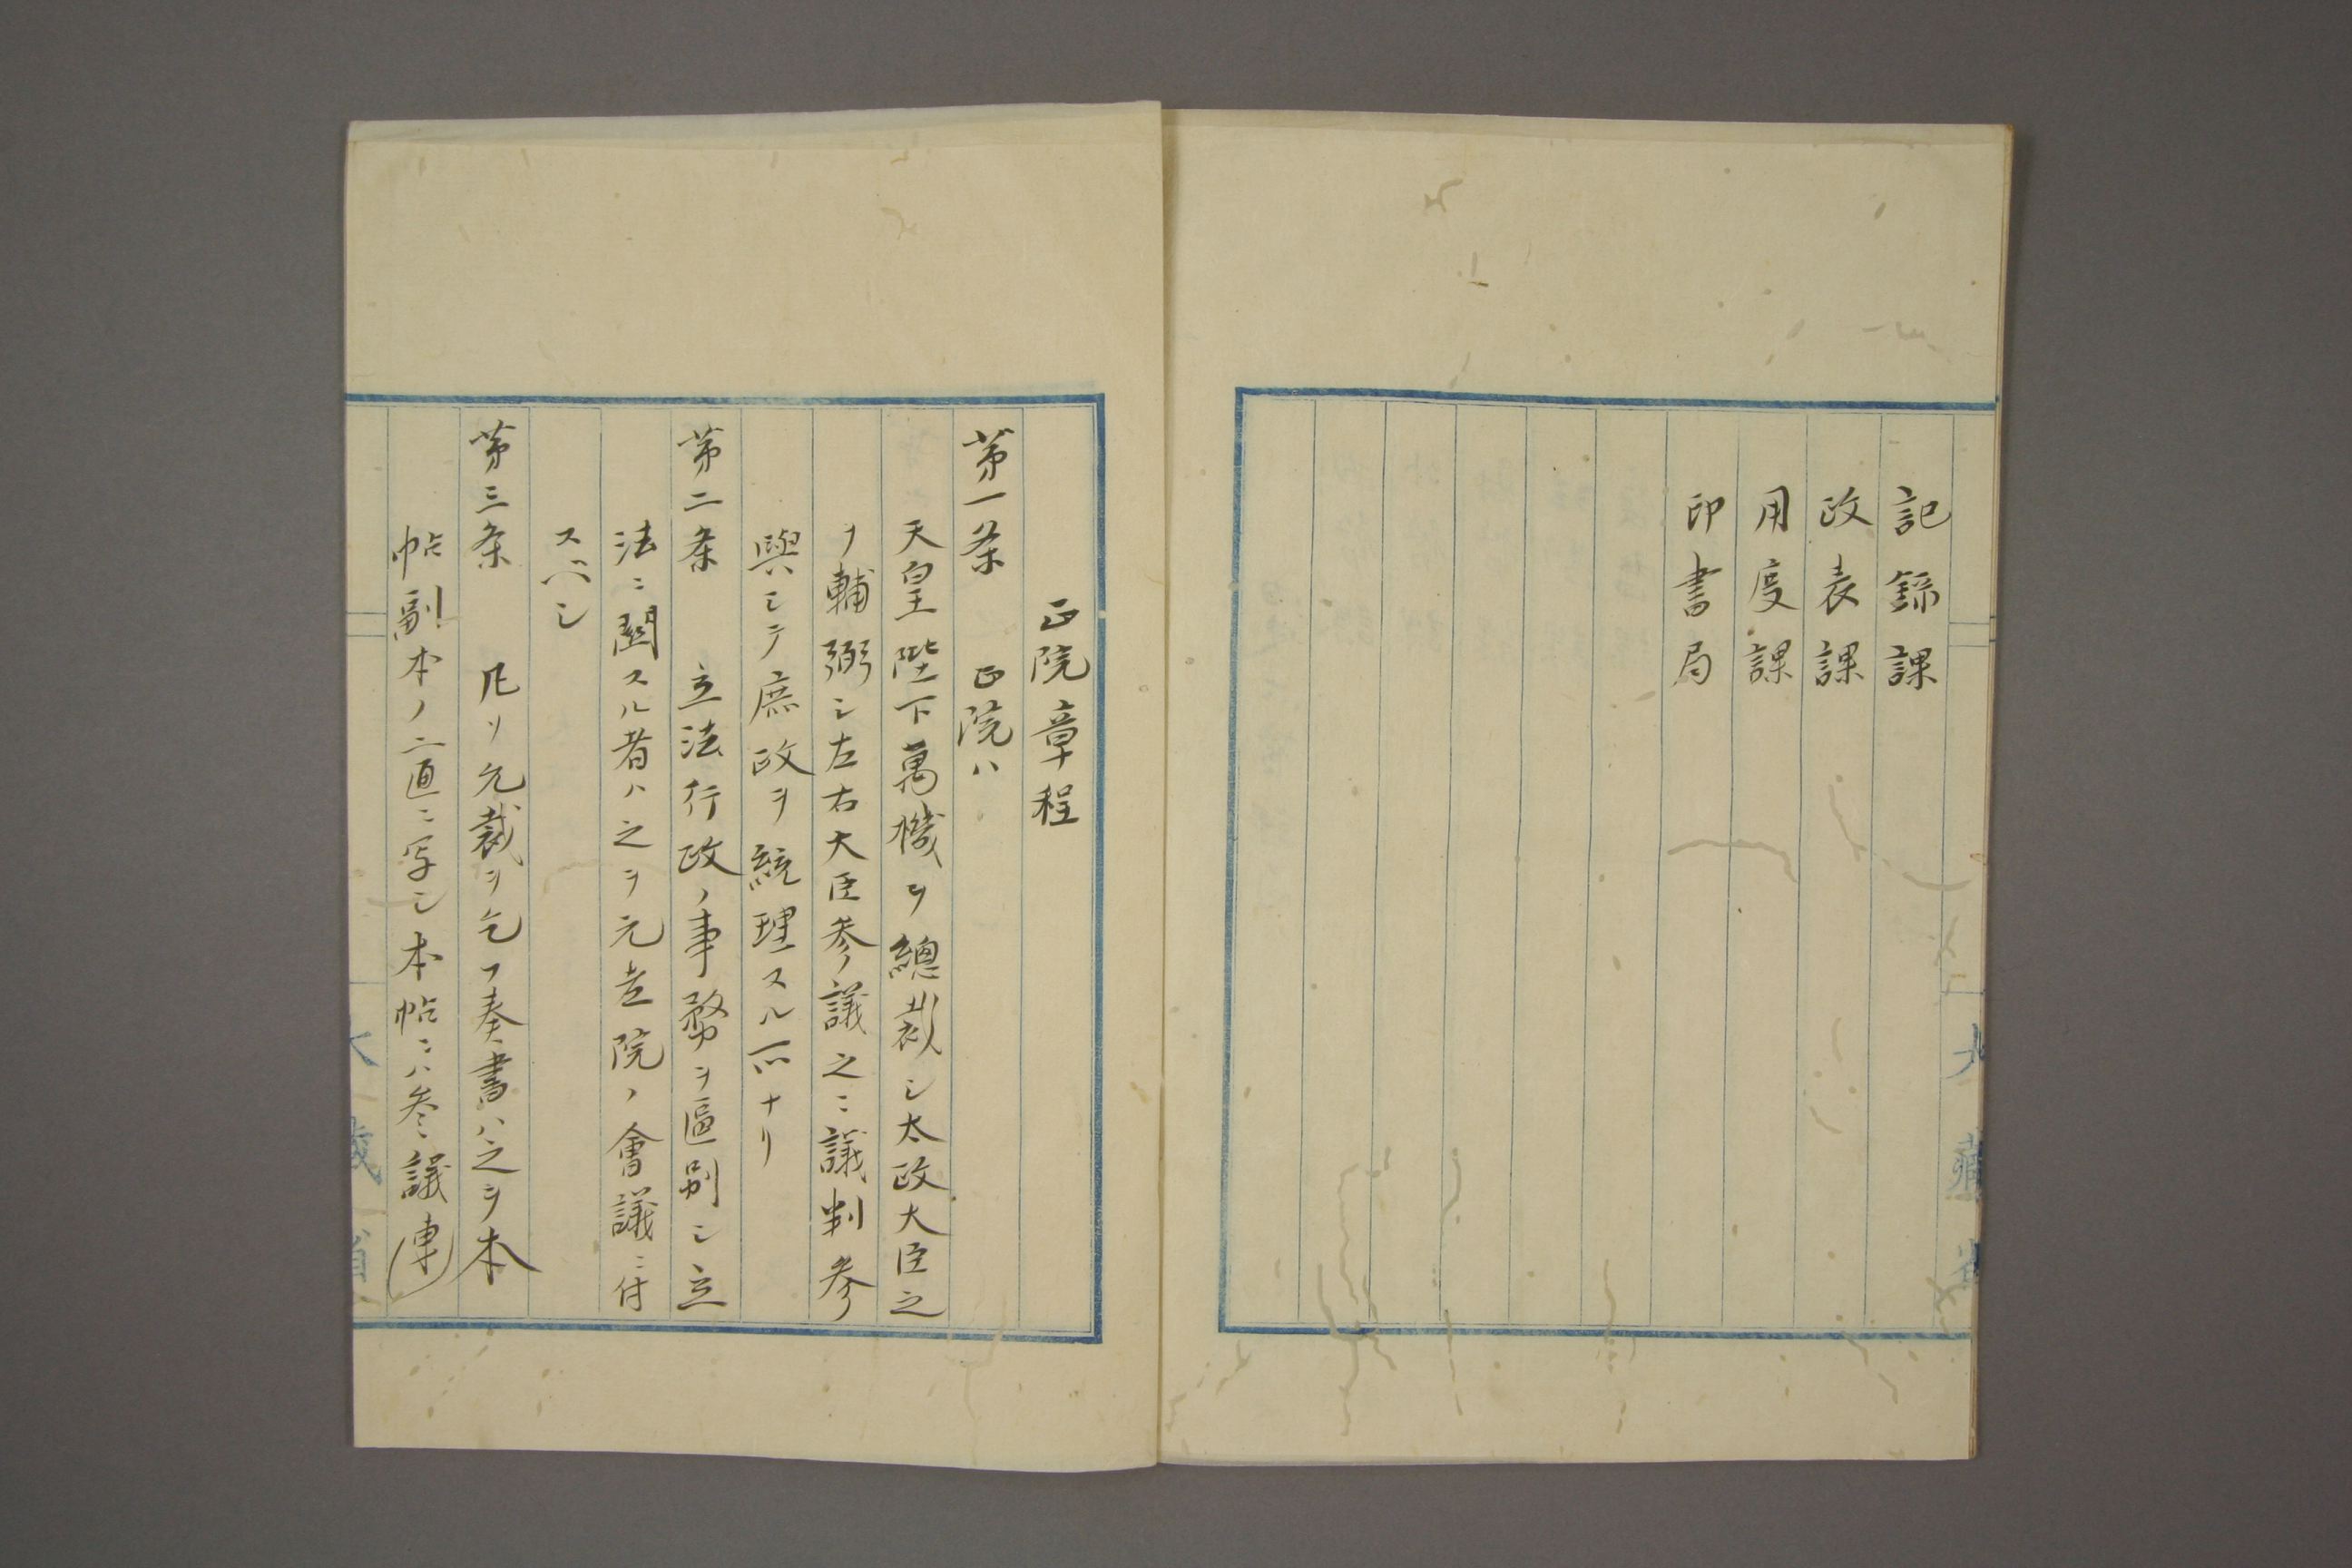 記錄課
政表課
用度課
印書局
正院章程
第一条 正院ハ
天皇陛下萬機ヲ總裁シ太政大臣之
ヲ輔弼シ左右大臣参議之ニ議判参
與シテ庶政ヲ統理スル所ナリ
第二条 立法行政ノ事務ヲ區別シ立
法ニ關スル者ハ之ヲ元老院ノ會議ニ付
スベシ
第三条 凡ソ允裁ヲ乞フ奏書ハ之ヲ本
帖副本ノ二通ニ写シ本帖ニハ参議連
大藏省